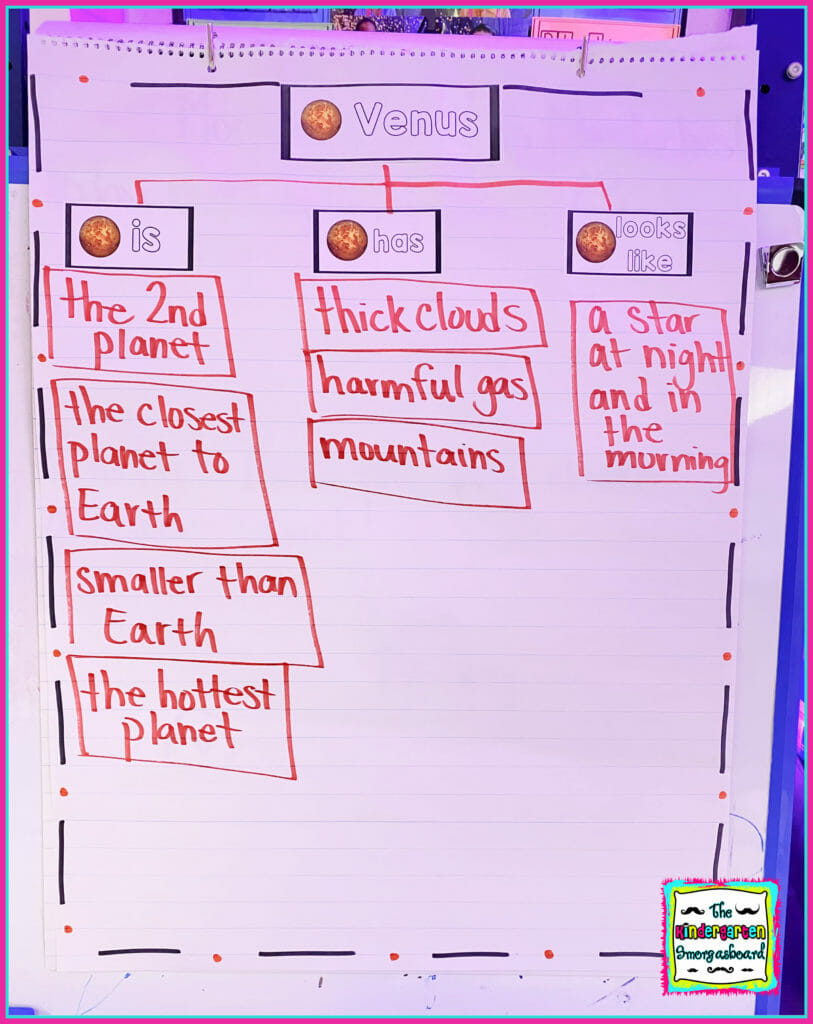 Venus
is
the 2nd
planet
the closest
planet to
Earth
smaller than
Earth
the hottest
planet
has
thick clouds
harmful gas
mountains
looks
like
a star
at night
and in
the
morning
The
Kindergarten
Smorgasboard